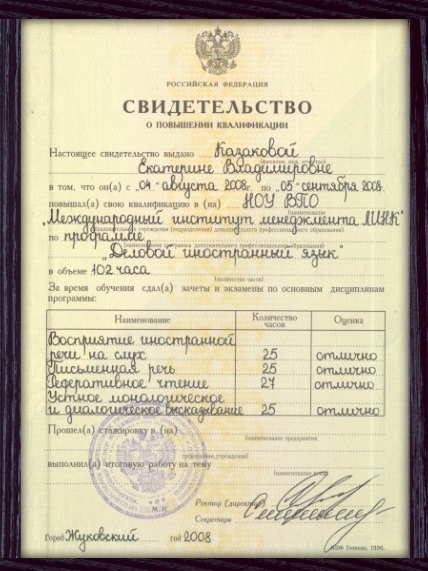 РОССИЙСКАЯ ФЕДЕРАЦИЯ
СВИДЕТЕЛЬСТВО
О ПОВЫШЕНИИ КВАЛИФИКАЦИИ
Настоящее свидетельство выдано Казаковой
(фамилия, имя, отчество)
Екатерине Владимировне
в том, что он(а) с „04“ августа 2008г. по „05“ сентября 2008г.
повышал(а) свою квалификацию в (на) НОУ ВПО
"Международный институт менеджмента ЛИНК"
по программе
"Деловой иностранный язык"
в объеме 102 часа
(количество часов)
За время обучения сдал(а) зачеты и экзамены по основным дисциплинам
программы:
Наименование Количество часов Оценка
Восприятие иностранной
речи на слух 25 отлично
Письменная речь 25 отлично
Реферативное чтение 27 отлично
Устное монологическое
и диалогическое высказывание 25 отлично
Прошел(а) стажировку в (на)
(наименование предприятия,
организации, учреждения)
выполнил(а) итоговую работу на тему
(наименование темы)
М.П.
Ректор (директор)
Секретарь
Город Жуковский год 2008
1996.